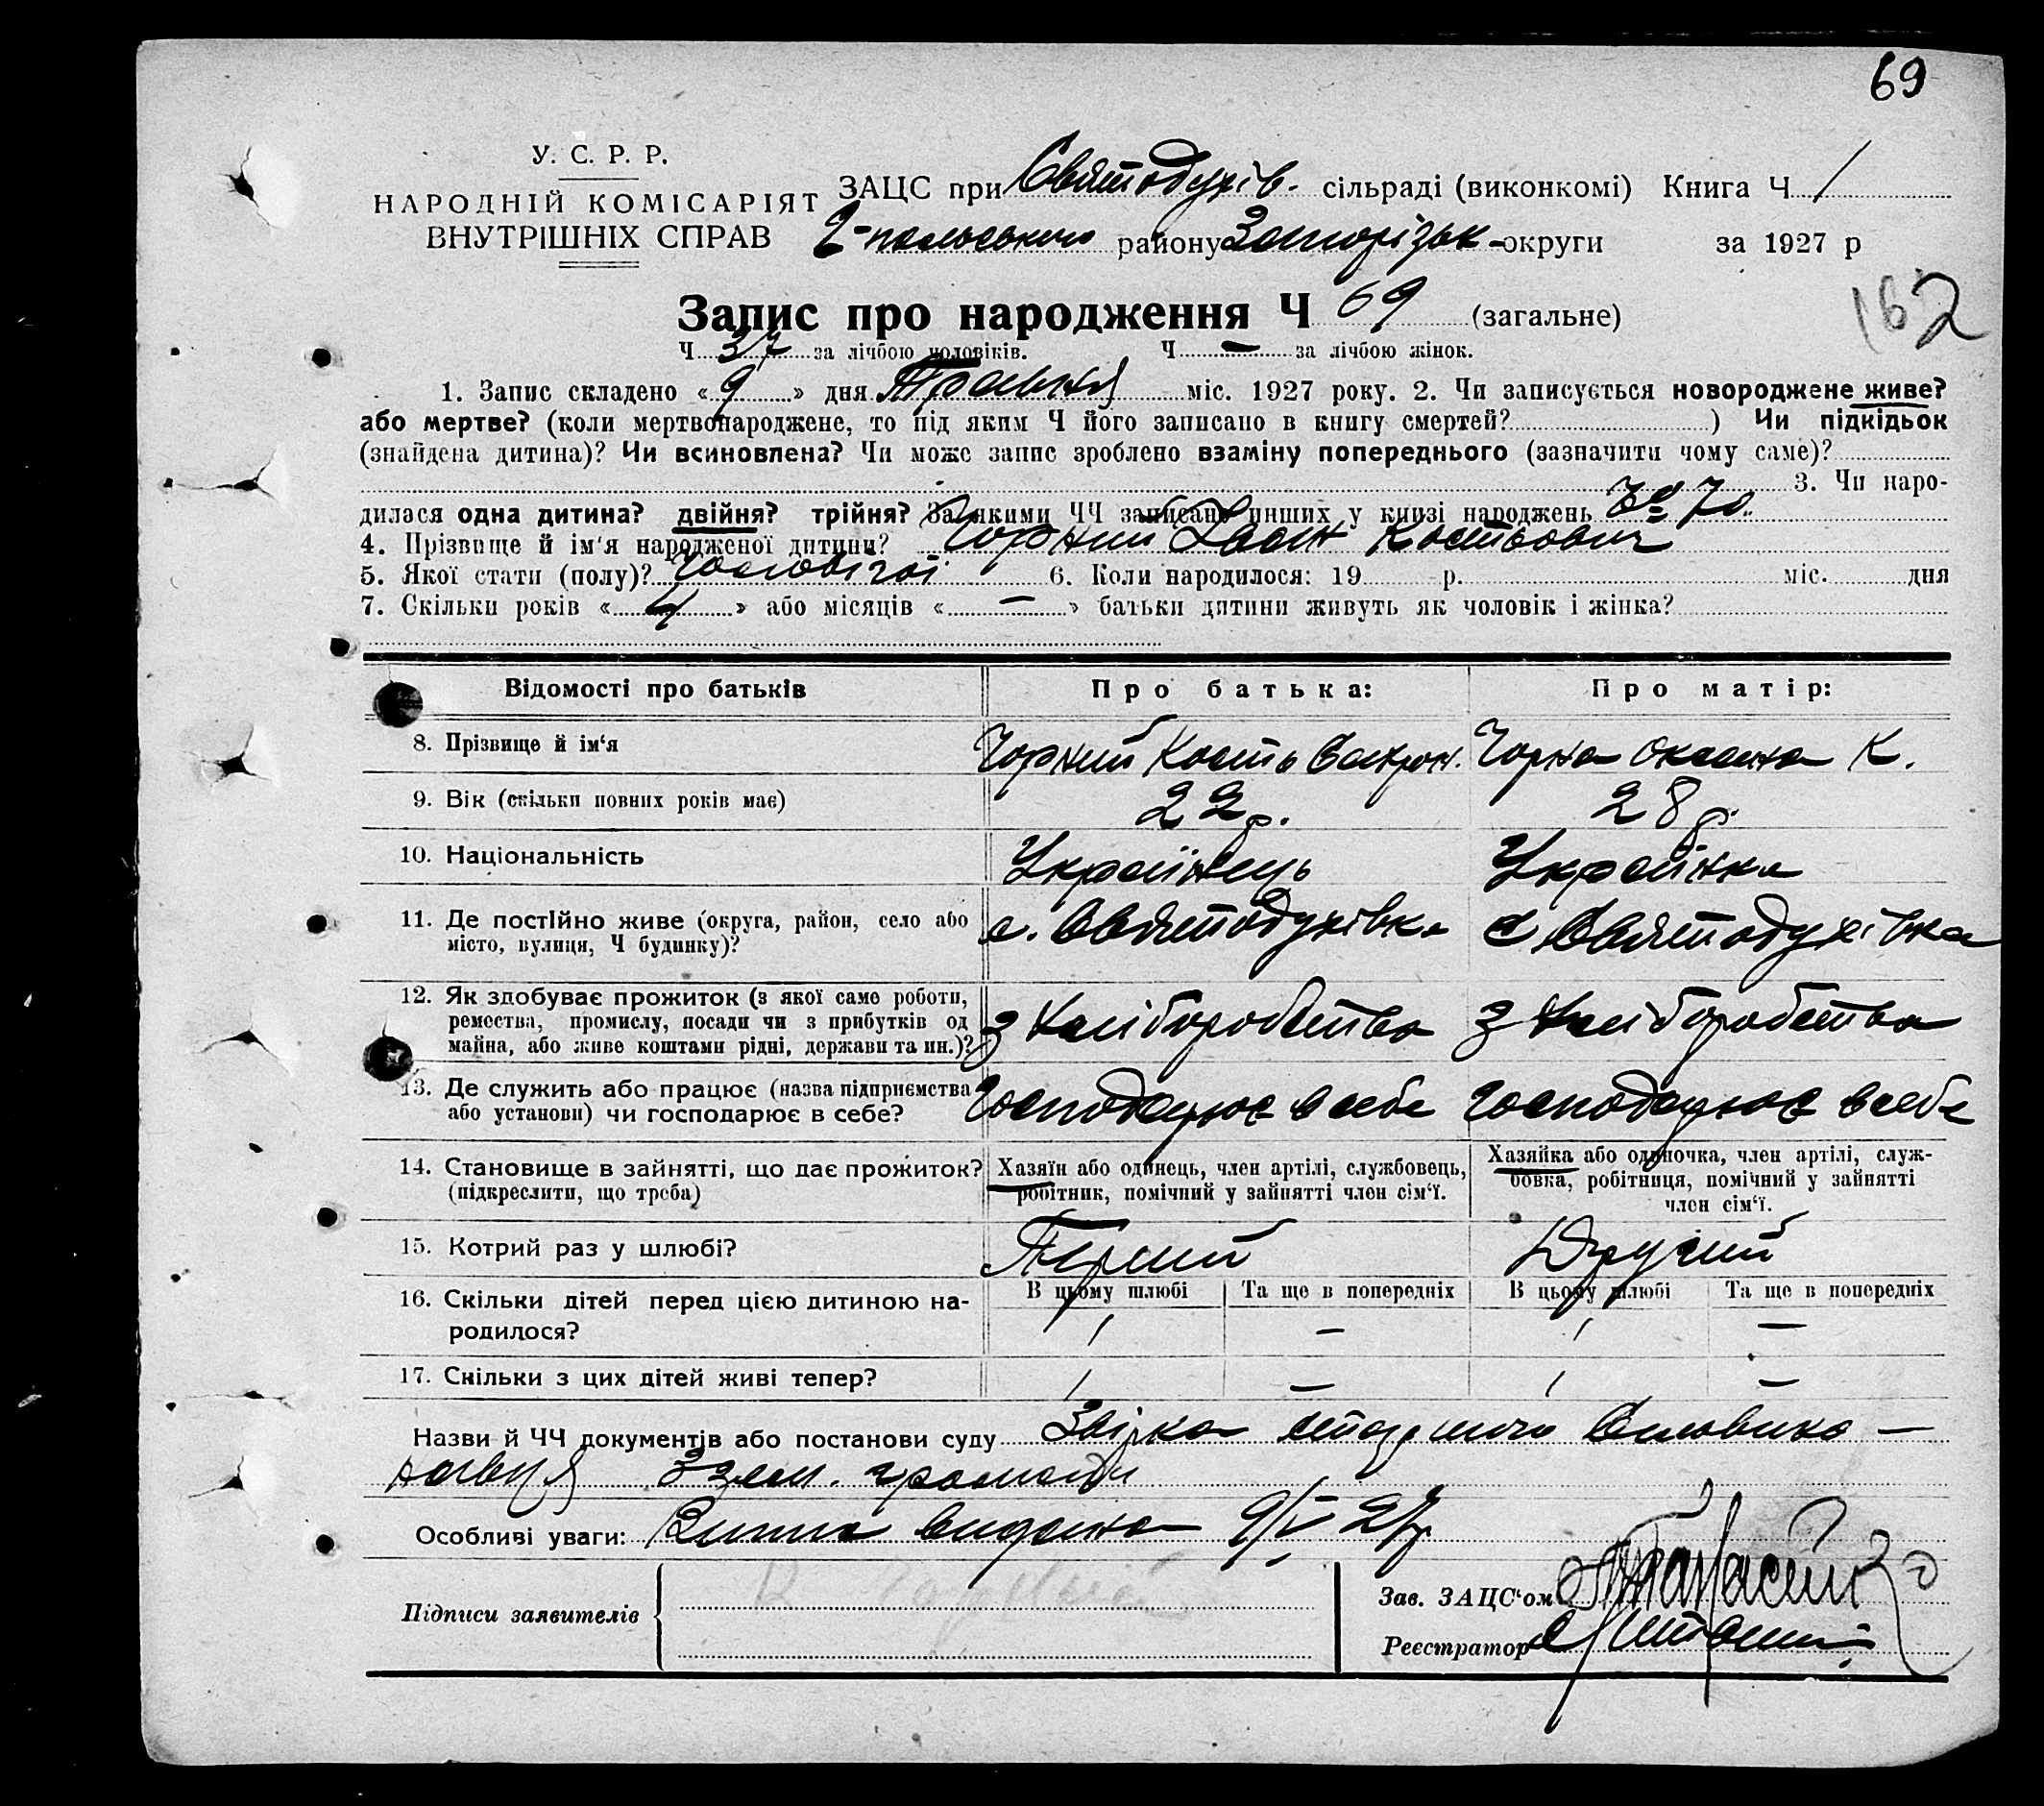 69
У. С. Р. Р.
НАРОДНІЙ КОМІСАРІЯТ
ВНУТРІШНІХ СПРАВ
ЗАЦС при Святодухів. сільраді (виконкомі) Книга Ч 1
району Запорізьк- округи за 1927 р
162
Запис про народження Ч 69 (загальне)
Ч 37 за лічбою чоловіків. Ч — за лічбою жінок.
1. Запис складено « 9 » дня Травня міс. 1927 року. 2. Чи записується новороджене живе?
або мертве? (коли мертвонароджене, то під яким Ч його записано в книгу смертей? ) Чи підкідьок
(знайдена дитина)? Чи всиновлена? Чи може запис зроблено взаміну попереднього (зазначити чому саме)?
3. Чи наро-
дилася одна дитина? двійня? трійня? За якими ЧЧ записано инших у книзі народжень 70
4. Прізвище й ім'я народженої дитини? Чорний Іван Костьович
5. Якої стати (полу)? Чоловічої 6. Коли народилося: 19 р. міс. дня
7. Скільки років « 4 » або місяців « — » батьки дитини живуть як чоловік і жінка?
Відомості про батьків Про батька: Про матір:
8. Прізвище й ім'я Чорний Кость Чорна Оксана К.
9. Вік (скільки повних років має) 22 р. 28 р.
10. Національність Українець Українка
11. Де постійно живе (округа, район, село або с. Святодухівка с Святодухівка
місто, вулиця, Ч будинку)?
12. Як здобуває прожиток (з якої саме роботи,
ремества, промислу, посади чи з прибутків од з хліборобства з хліборобства
майна, або живе коштами рідні, держави та ин.)?
13. Де служить або працює (назва підприємства Господарює в себе Господарює в себе
або установи) чи господарює в себе?
14. Становище в зайнятті, що дає прожиток? Хазяїн або одинець, член артілі, службовець, Хазяйка або одиночка, член артілі, служ-
(підкреслити, що треба) робітник, помічний у зайнятті член сім'ї. бовка, робітниця, помічний у зайнятті
член сім'ї.
15. Котрий раз у шлюбі? Перший Другий
16. Скільки дітей перед цією дитиною на- В цьому шлюбі Та ще в попередніх В цьому шлюбі Та ще в попередніх
родилося? 1 — 1 —
17. Скільки з цих дітей живі тепер? 1 — 1 —
Назви й ЧЧ документів або постанови суду
зем. громади
Особливі уваги: видана 9/V 27р
Підписи заявителів
Зав. ЗАЦС'ом
Реєстратор